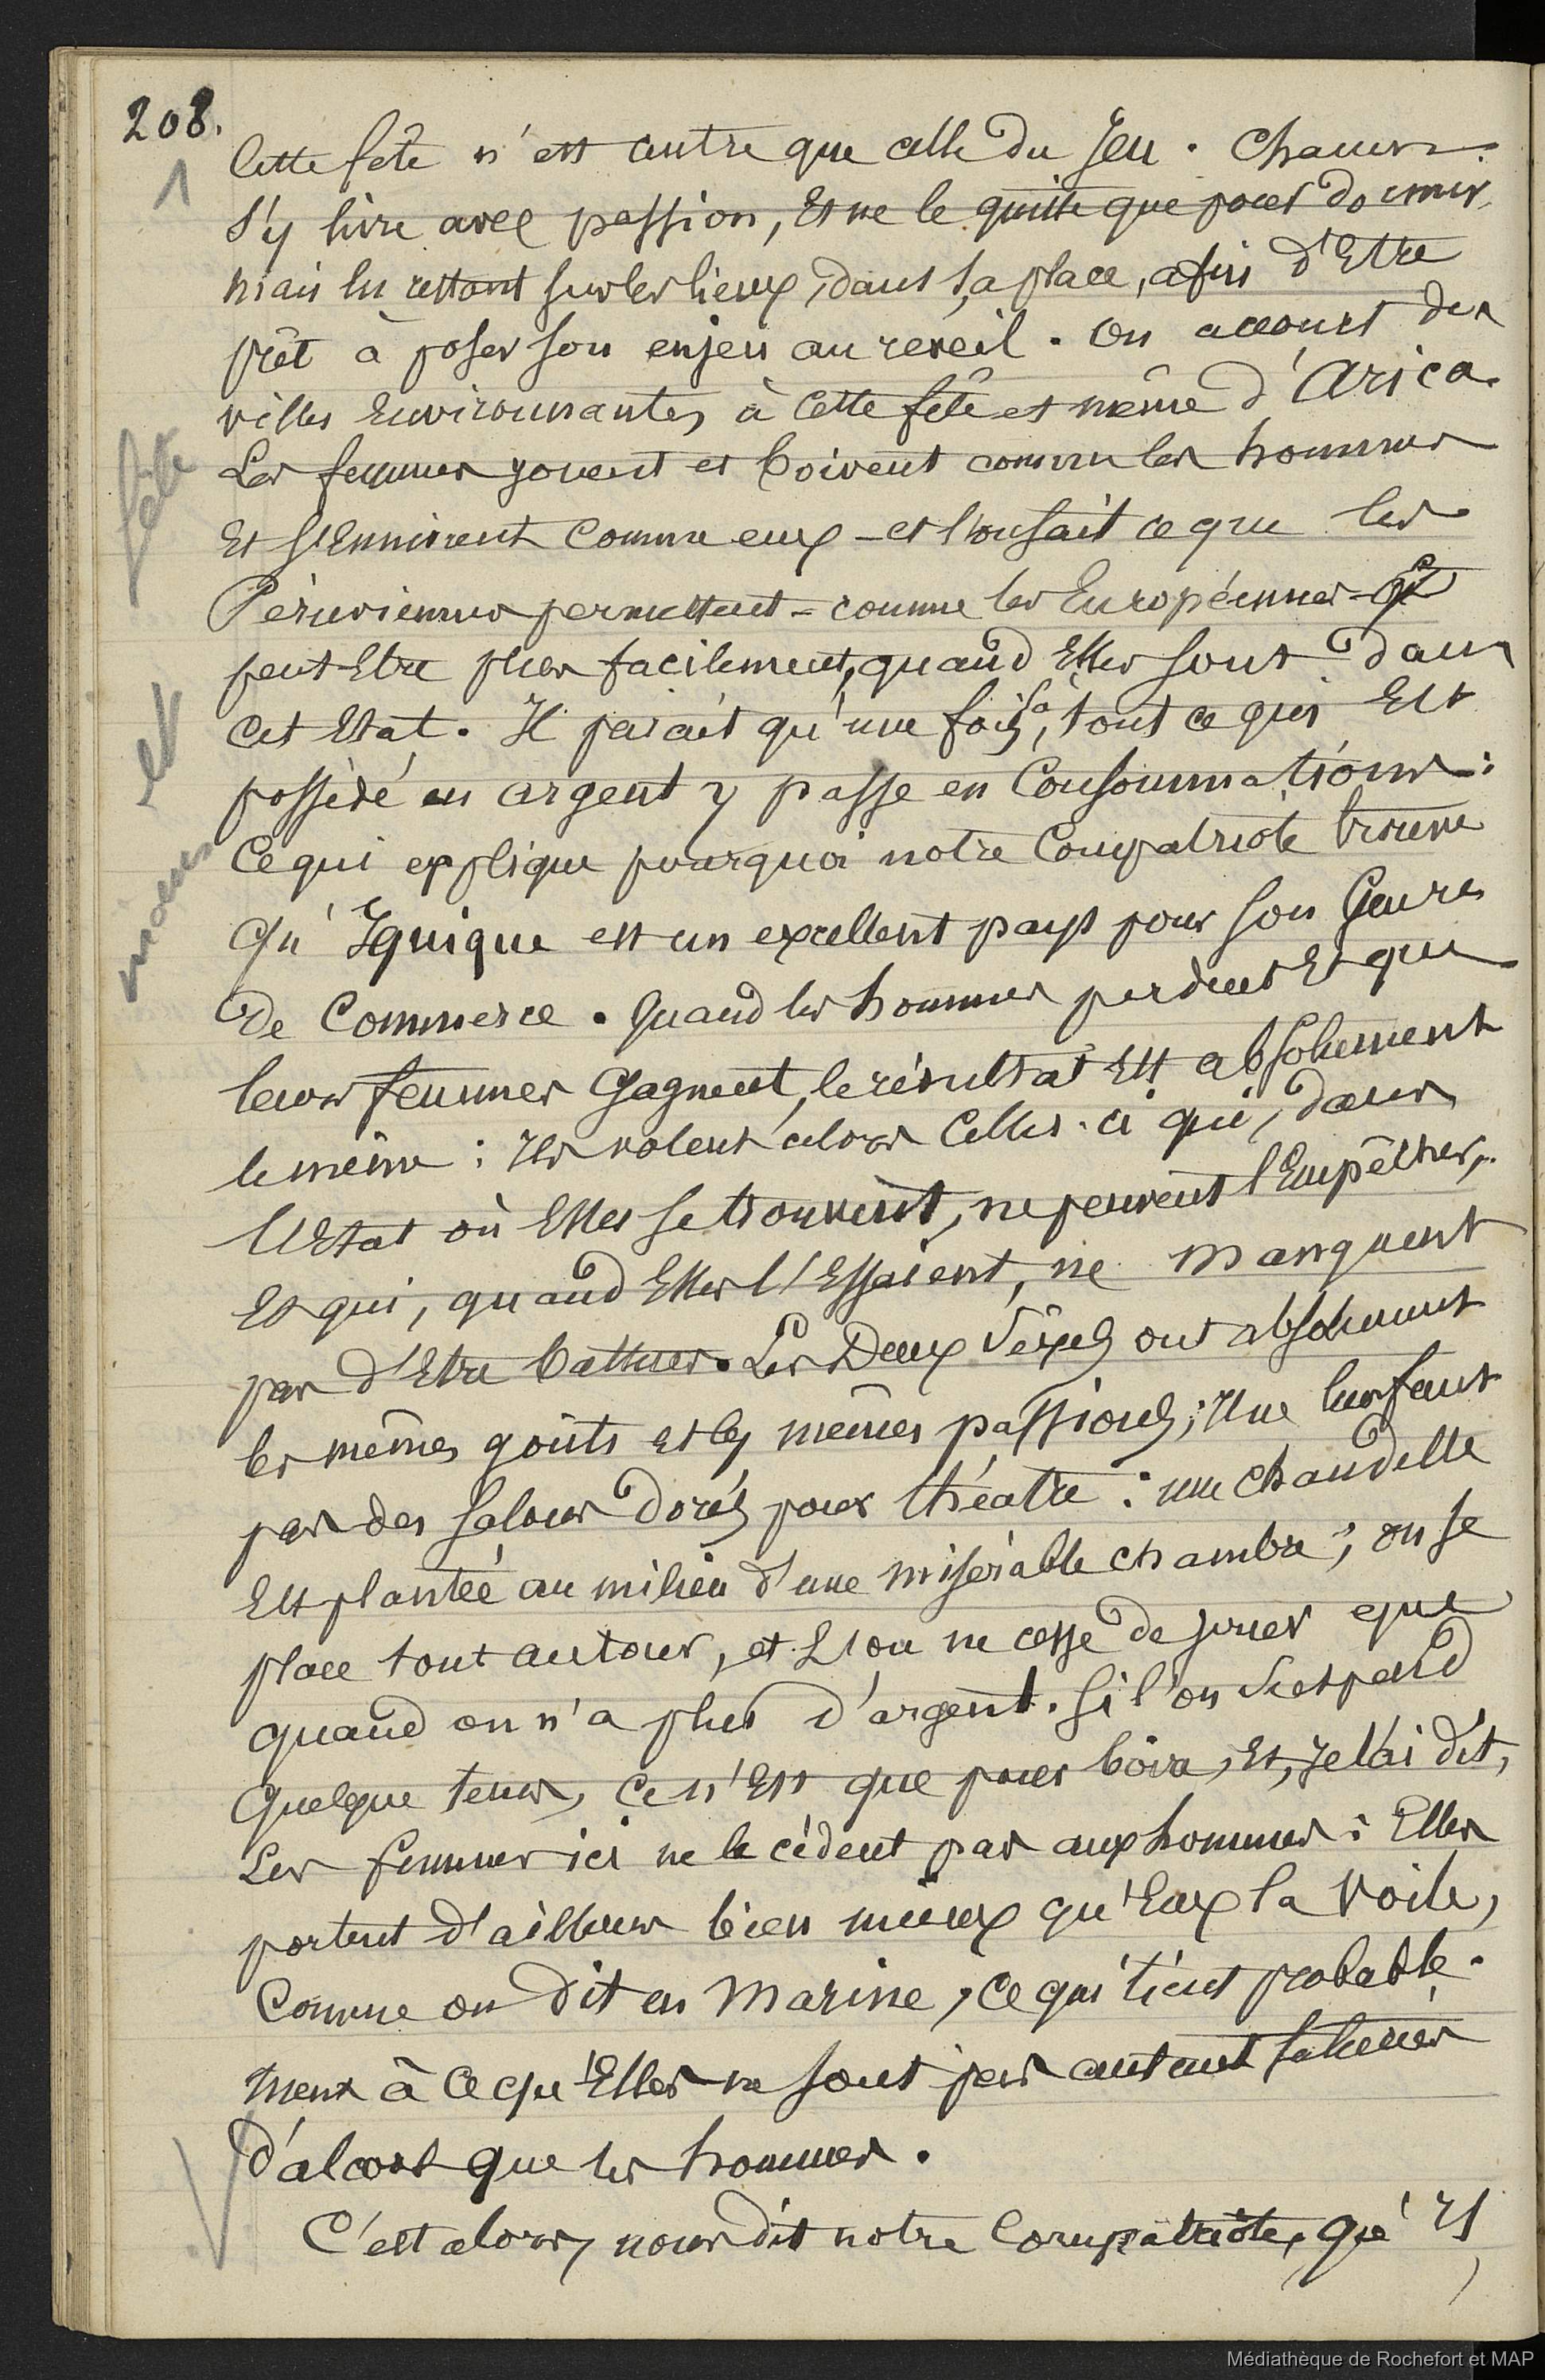 208.
1
Cette fête n'est autre que celle du Jeu. Chacun
s'y livre avec passion, Et ne le quitte que pour dormir,
mais en restant sur les lieux, dans sa place, afin d'Etre
prêt à poser son enjeu au reveil. On accourt des
villes Environnantes à Cette fête et même d'Arica.
Les femmes jouent et boivent comme les hommes
Et s'Ennivrent Comme eux _ et l'on sait ce que les
Péruviennes permettent - comme les Européennes - Et
peut Etre plus facilement, quand Elles sont dans
cet Etat. Il parait qu'une fois là, tout ce qui Est
possédé en argent y passe en Consommations :
Ce qui explique pourquoi notre Compatriote trouve
qu'Iquique est un excellent pays pour son Genre
de Commerce. Quand les hommes perdent Et que
leurs femmes Gagnent, le résultat Est absolument
le même : Ils volent alors Celles-ci qui, dans
l'Etat où Elles se trouvent, ne peuvent l'Empêcher,
Et qui, quand Elles l'Essaient, ne manquent
pas d'Etre battues. Les Deux Sexes ont absolument
les mêmes goûts et les mêmes passions ; Il ne leur faut
pas des salons dorés pour théatre : une chandelle
Est plantée au milieu d'une misérable chambre ; on se
place tout autour, et L'on ne cesse de jouer que
quand on n'a plus d'argent. Si l'on suspend
quelque tems, ce n'Est que pour boire, Et, je l'ai dit,
Les femmes ici ne le cédent pas aux hommes : Elles
portent d'ailleurs bien mieux qu'Eux la Voile,
Comme on dit en Marine, ce qui tient probable-
ment à ce qu'Elles ne sont pas autant saturées
d'alcool que les hommes.
C'est alors, nous dit notre Compatriote, qu'Il
moeurs et fête